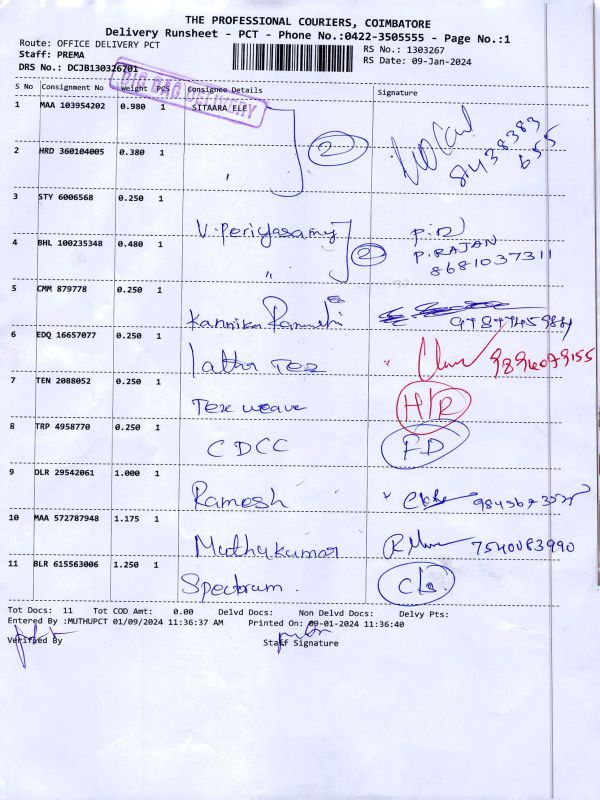 THE PROFESSIONAL COURIERS, COIMBATORE
Delivery Runsheet - PCT - Phone No.:0422-3505555 - Page No.:1
Route: OFFICE DELIVERY PCT
RS No.: 1303267
Staff: PREMA
RS Date: 09-Jan-2024
DRS No.: DCJB130326701
BIG BAG DELIVERY
S No Consignment No Weight PCS Consignee Details Signature
1 MAA 103954202 0.980 1 SITAARA ELE
2
8438383
655
2 HRD 360104005 0.380 1 "
3 STY 6006568 0.250 1 V. Periyasamy P.R
4 BHL 100235348 0.480 1 " 2 P.RAJAN
8681037311
5 CMM 879778 0.250 1 Kannika
6 EDQ 16657077 0.250 1 Latha Tex
7 TEN 2088052 0.250 1 Tex weave H/R
8 TRP 4958770 0.250 1 CDCC FD
9 DLR 29542061 1.000 1 Ramesh
10 MAA 572787948 1.175 1 Muthukumar 7540083990
11 BLR 615563006 1.250 1 Spectrum.
Tot Docs: 11 Tot COD Amt: 0.00 Delvd Docs: Non Delvd Docs: Delvy Pts:
Entered By :MUTHUPCT 01/09/2024 11:36:37 AM Printed On: 09-01-2024 11:36:40
Verified By Staff Signature